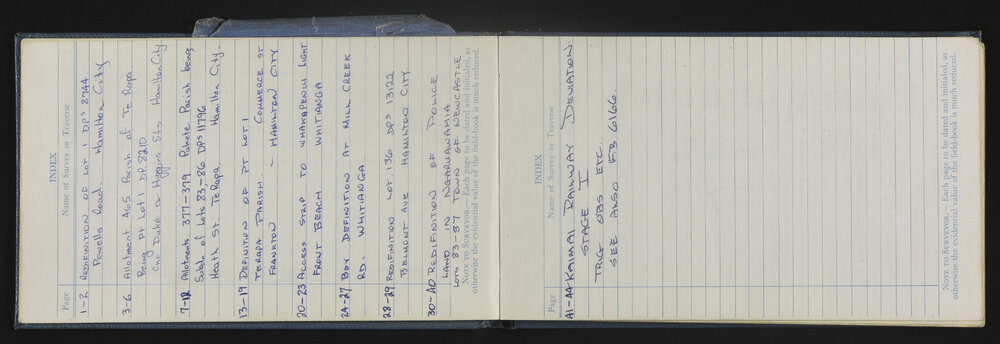 INDEX
Page Name of Survey or Traverse
1-2 REDIFINITION OF LOT 1 DPS 8744
Powells Road. Hamilton City
3-6 Allotment 465 Parish of Te Rapa
Being Pt Lot 1 DP 8210
Cnr Duke & Higgins Sts Hamilton City
7-12 Allotments 377-379 Pukete Parish being
Subdn of Lots 83-86 DPS 11796
Heath St. Te Rapa Hamilton City.
13-19 DEFINITION OF PT LOT 1
TERAPA PARISH. COMMERCE ST
FRANKTON - HAMILTON CITY
20-23 ACCESS STRIP TO WHAKAPENUI LIGHT
FRONT BEACH WHITIANGA
24-27 BDY DEFINITION AT MILL CREEK
RD. WHITIANGA
28-29 REDIFINITION LOT 136 DPS 13122
BELMONT AVE HAMILTON CITY
30-40 REDIFINITION OF POLICE
LAND IN NGARUAWAHIA
LOTS 83-87 TOWN OF NEWCASTLE
NOTE TO SURVEYOR.— Each page to be dated and initialed, as
otherwise the evidential value of the field-book is much reduced.
INDEX
Page Name of Survey or Traverse
41-44 KAIMAI RAILWAY DEVIATION.
STAGE I
TRIG OBS ETC.
SEE ALSO FB 6166.
NOTE TO SURVEYOR.— Each page to be dated and initialed, as
otherwise the evidential value of the field-book is much reduced.